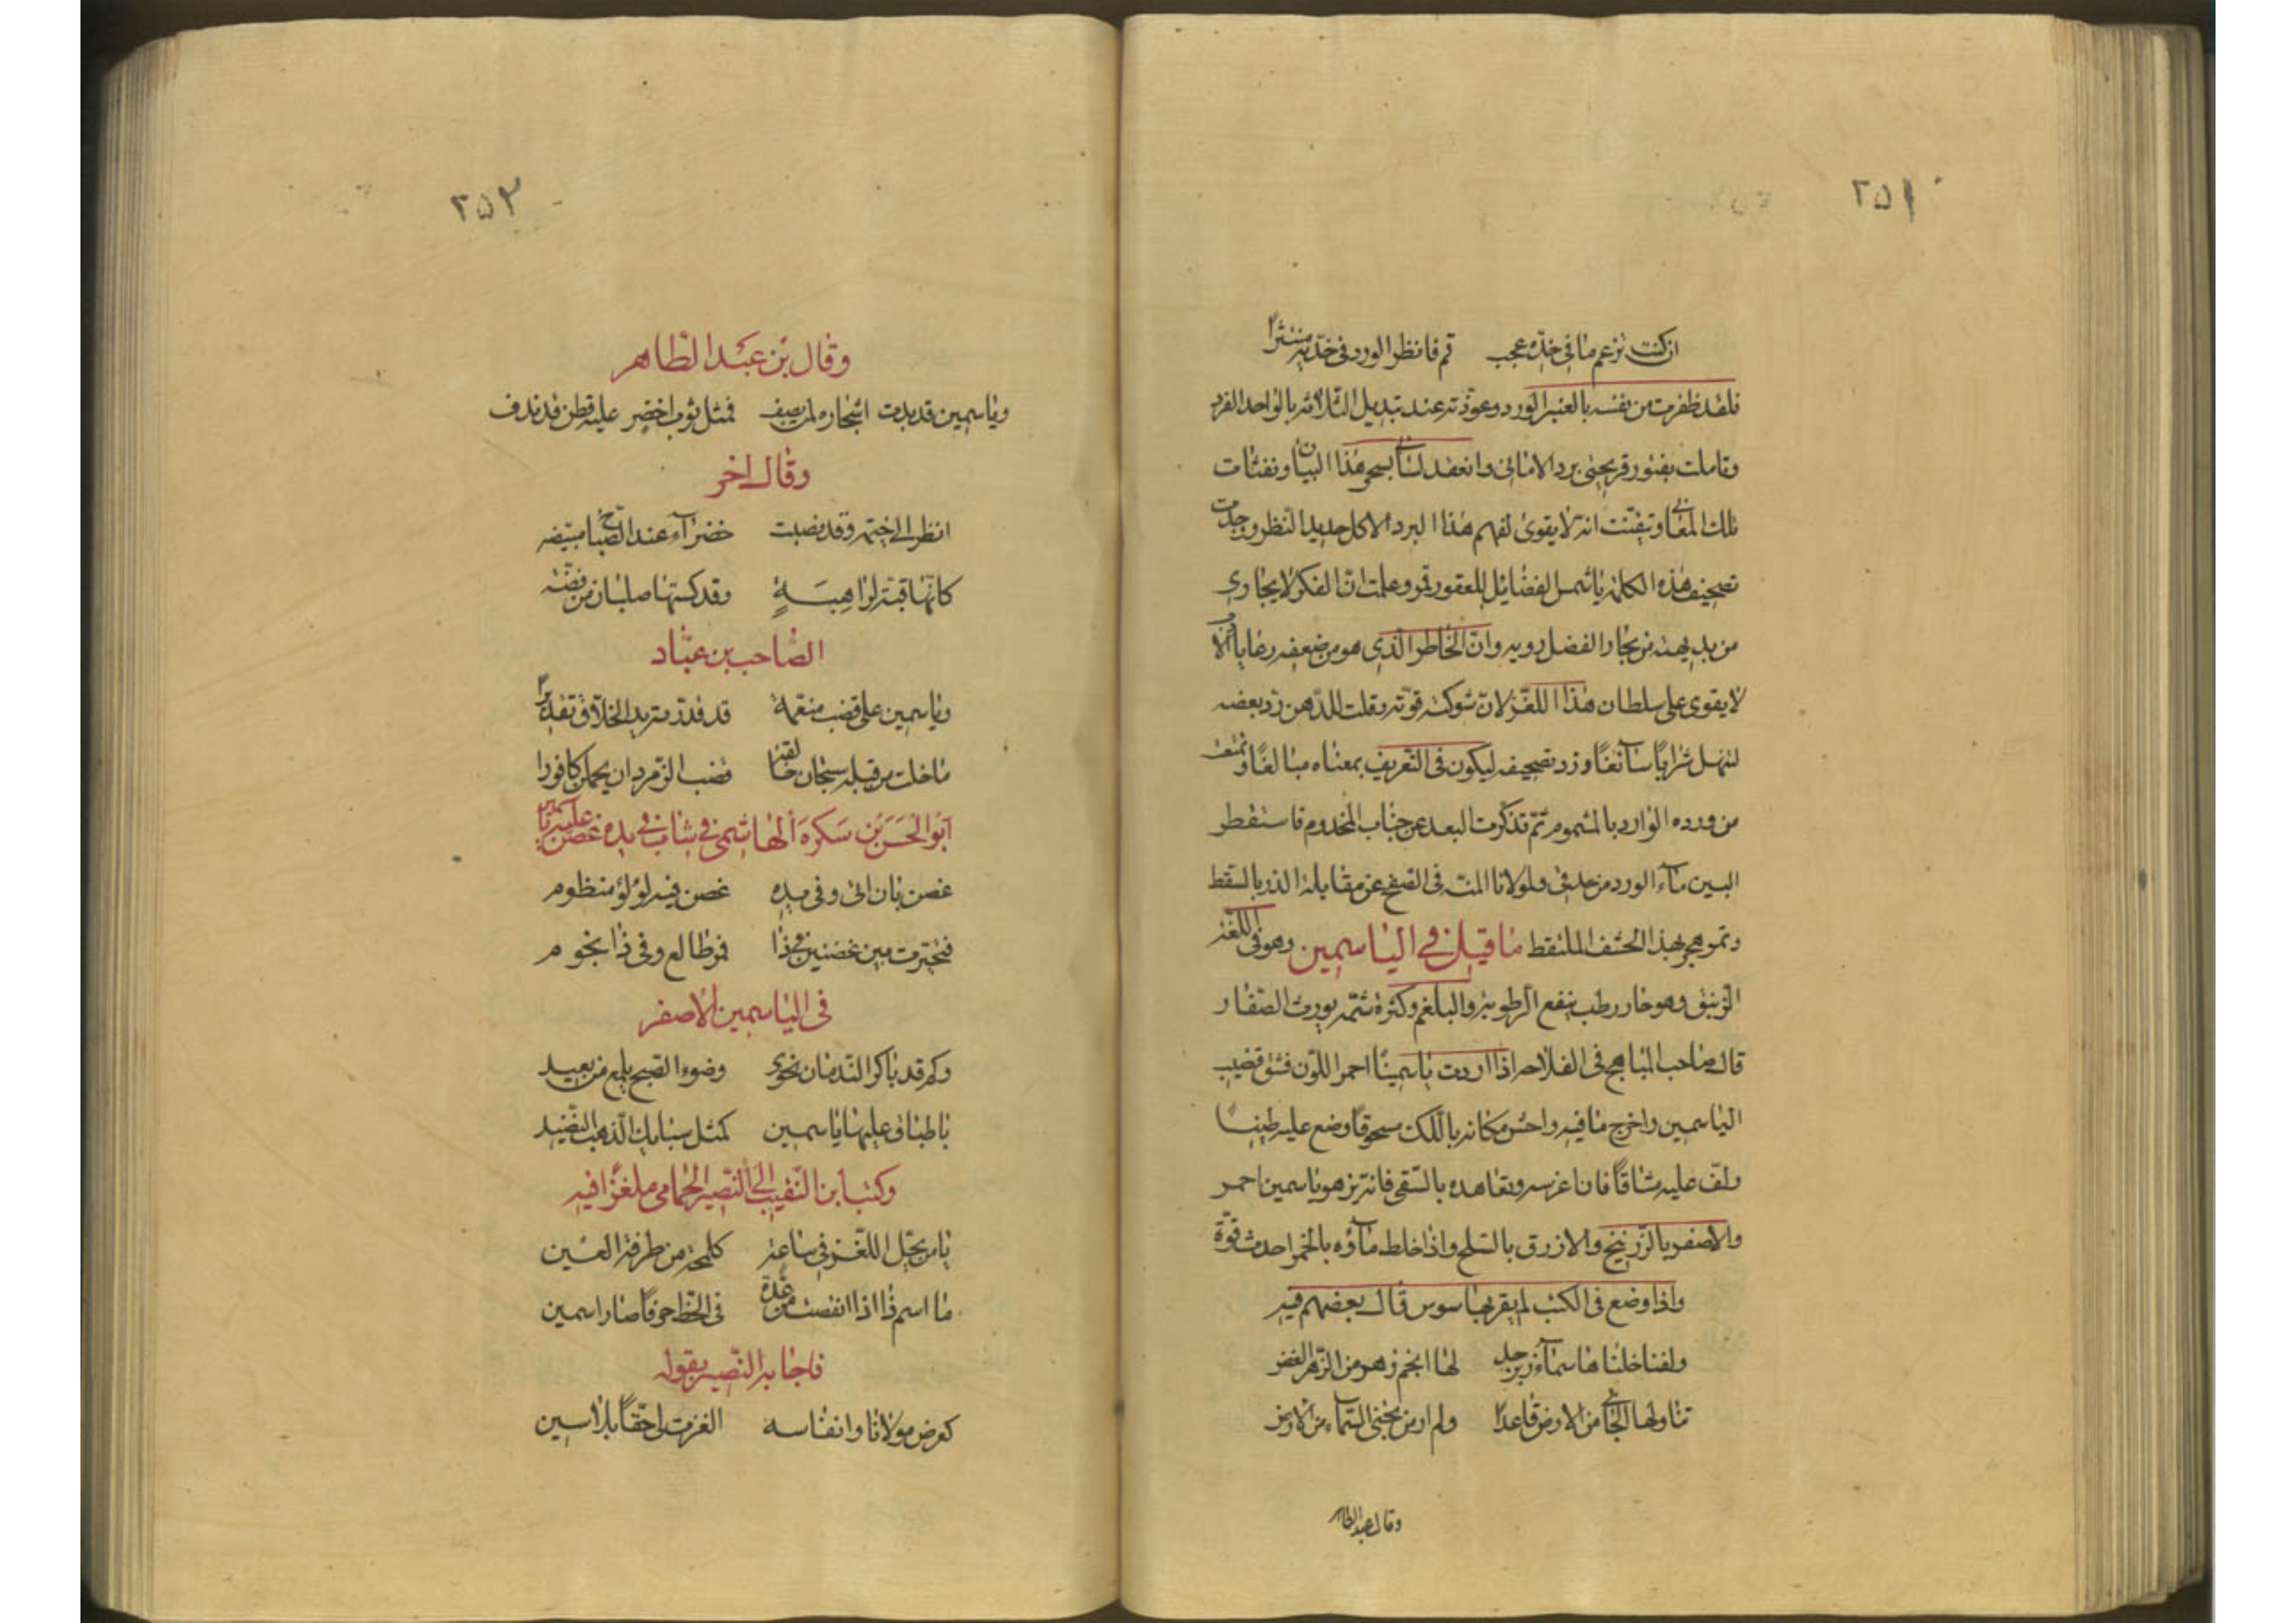 ٢٥١
ان كنت تزعم ما فى خده عجب قم فانظر الورد فى خديه منتثرا
فلقد ظفرت من نفسه بالعنبر الورد وعوذته عند تبديل الثلاثة بالواحد الفرد
وتاملت بفتور قريحتى برد الامانى وانعقد لسانى بسحر هذا البيان ونفثات
تلك المعانى وتيقنت انه لا يقوى لفهم هذا البرد الا كل حديد النظر ووجدت
تصحيف هذه الكلمة يا شمس الفضايل للعقور قمر وعلمت ان الفكر لا يجاوى
من بديهته من بحار الفضل روية وان الخاطر الذى هو من ضعفه رعايا
لا يقوى على سلطان هذا اللغز لان شوكته قوته وقلت للذهن رد بعضه
لتنهل شرابا سآئغا وزد تصحيفه ليكون فى التعريف بمعناه مبالغا وتمتعت
من ورده الوارد بالمشموم ثم تذكرت البعد عن جناب المخدوم فاستقطر
البين مآء الورد من حدقى ولمولانا المنة فى الصفح عن مقابلة الدر بالسقط
وتموهجر بهذا الحشف الملتقط ما قيل فى الياسمين وهو فى اللغز
الزنبق وهو حار رطب ينفع الرطوبة والبلغم وكثرة شمه يورث الصفار
قال صاحب المباهج فى الفلاحة اذا اردت ياسمينا احمر اللون فشق قضيب
الياسمين واخرج ما فيه واحش مكانه باللك مسحوقا وضع عليه طينا
ولف عليه مشاقا فان اغرسه وتعاهده بالسقى فانه يزهو ياسمين احمر
والاصفر بالزرنيخ والازرق بالنيلج واذا خلط مآؤه بالخمر احدث قوة
واذا وضع فى الكتب لم يقربها سوس قال بعضهم فيه
ولفنا خلناها سمآء زبرجد لها انجم زهو من الزهر الغض
تناولها الجانى من الارض قاعدا ولم ار من يجنى السماء من الارض
وقال عبد الظاهر
٢٥٣
وقال بن عبد الظاهر
وياسمين قد بدت اشجاره لمن يصف فمثل ثوب اخضر عليه قطن قد ندف
وقال اخر
انظر الى خيمة وقد نصبت خضرآء عند الصباح مبيضه
كانها قبة لراهبة وقد كستها صلبان من فضه
الصاحب بن عباد
وياسمين على قضب منعمة قد قدرته يد الخلاق تقديرا
ما خلت من قبله سبحان خالقنا قضب الزمرد ان يحملن كافورا
ابو الحسن بن سكره الهاشمى فى شاب فى يده غصن عليه ياسمين
غصن بان اتى وفى يده غصن فيه لؤلؤ منظوم
فتحيرت بين غصنين فى ذا قمر طالع وفى ذا نجوم
فى الياسمين الاصفر
وكم قد باكر الندمان نحوى وضوء الصبح يلمع من بعيد
باطباق عليها ياسمين كمثل سبايك الذهب النضيد
وكتب ابن النقيب الى النصير الحمامى ملغزا فيه
يا من يحل اللغز فى ساعة كلمحة من طرفة العين
ما اسم اذا انقصت من عدة فى الخط حرفا صار اسمين
فاجابه النصير بقوله
كعرض مولانا وانفاسه الغزت لى حقا بلا سين